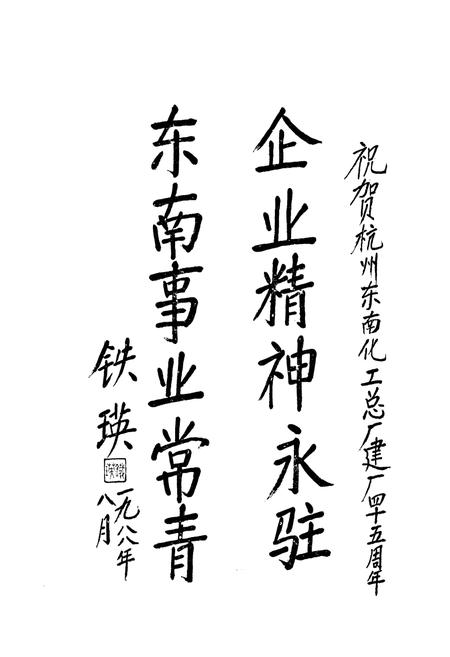 祝贺杭州东南化工总厂建厂四十五周年
企业精神永驻
东南事业常青
铁瑛
一九八八年
八月